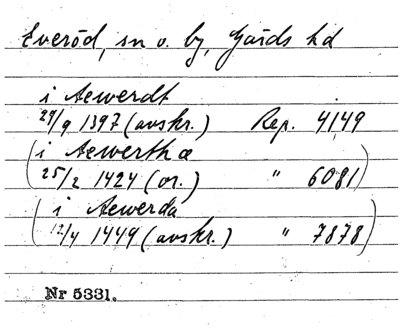 Everöd, sn o. by, Gärds hd
i Aewerdt
29/9 1397 (avskr.) Rep. 4149
(i Aewerthæ
25/2 1424 (or.) " 6081)
(i Aewerda
12/4 1449 (avskr.) " 7878)
Nr 5331.